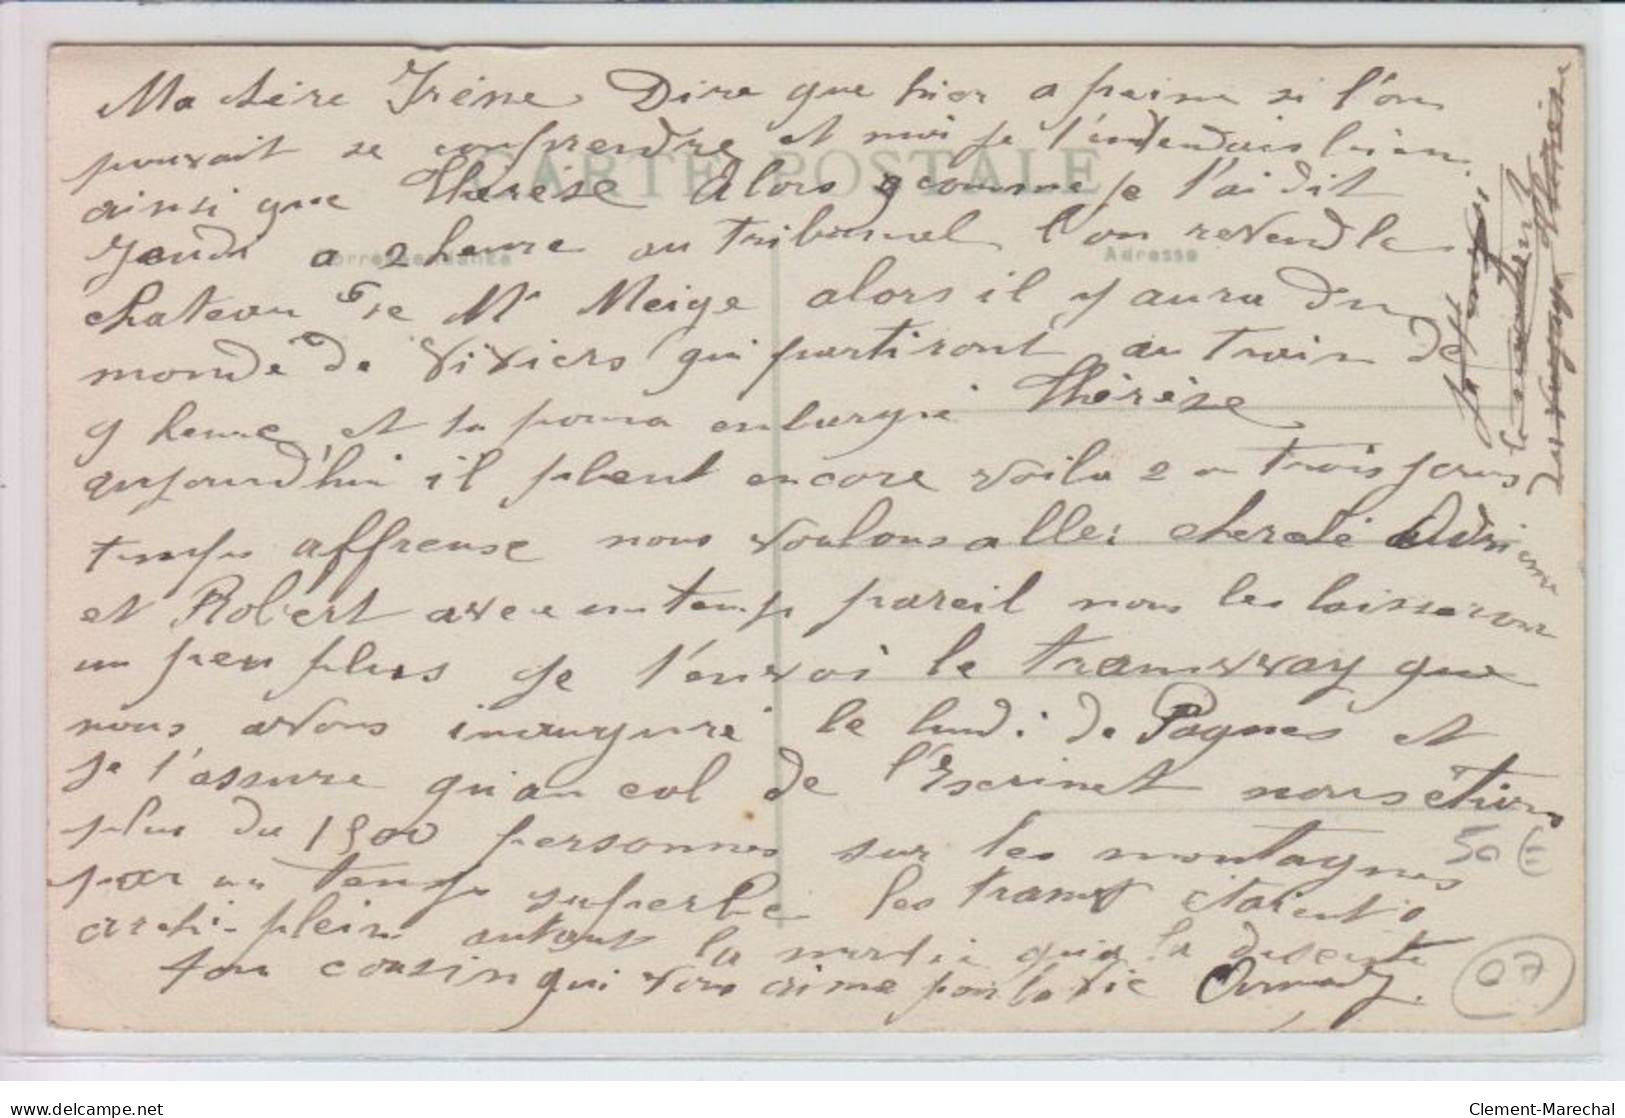 Ma chère Irène Dire que hier a peine si l'on
pouvait se comprendre et moi je t'entendais bien
CARTE POSTALE
ainsi que Thérèse Alors comme je t'ai dit
Jeudi a 2 heure au Tribunal l'on revend le
Correspondance
Adresse
chateau de Mr Meige alors il y aura du
monde de Viviers qui partiront au train de
9 heure et tu poura Thérèse
aujourd'hui il pleut encore voila 2 ou trois jours
temps affreuse nous voulons aller cherché Adrienne
et Robert avec un temp pareil nous les laisseron
un peu plus je t'envoi le tramvway que
nous avons inauguré le lundi de Pagnes et
je t'assure qu'au col de l'Escrinet nous étions
plus du 1500 personnes sur les montagnes
par un temps superbe les tramv étaient
archi-plein autant la montée qua la desente
ton cousin qui vous aime pour la vie Armand
du voyage
50 €
07
delcampe.net
Clement-Marechal